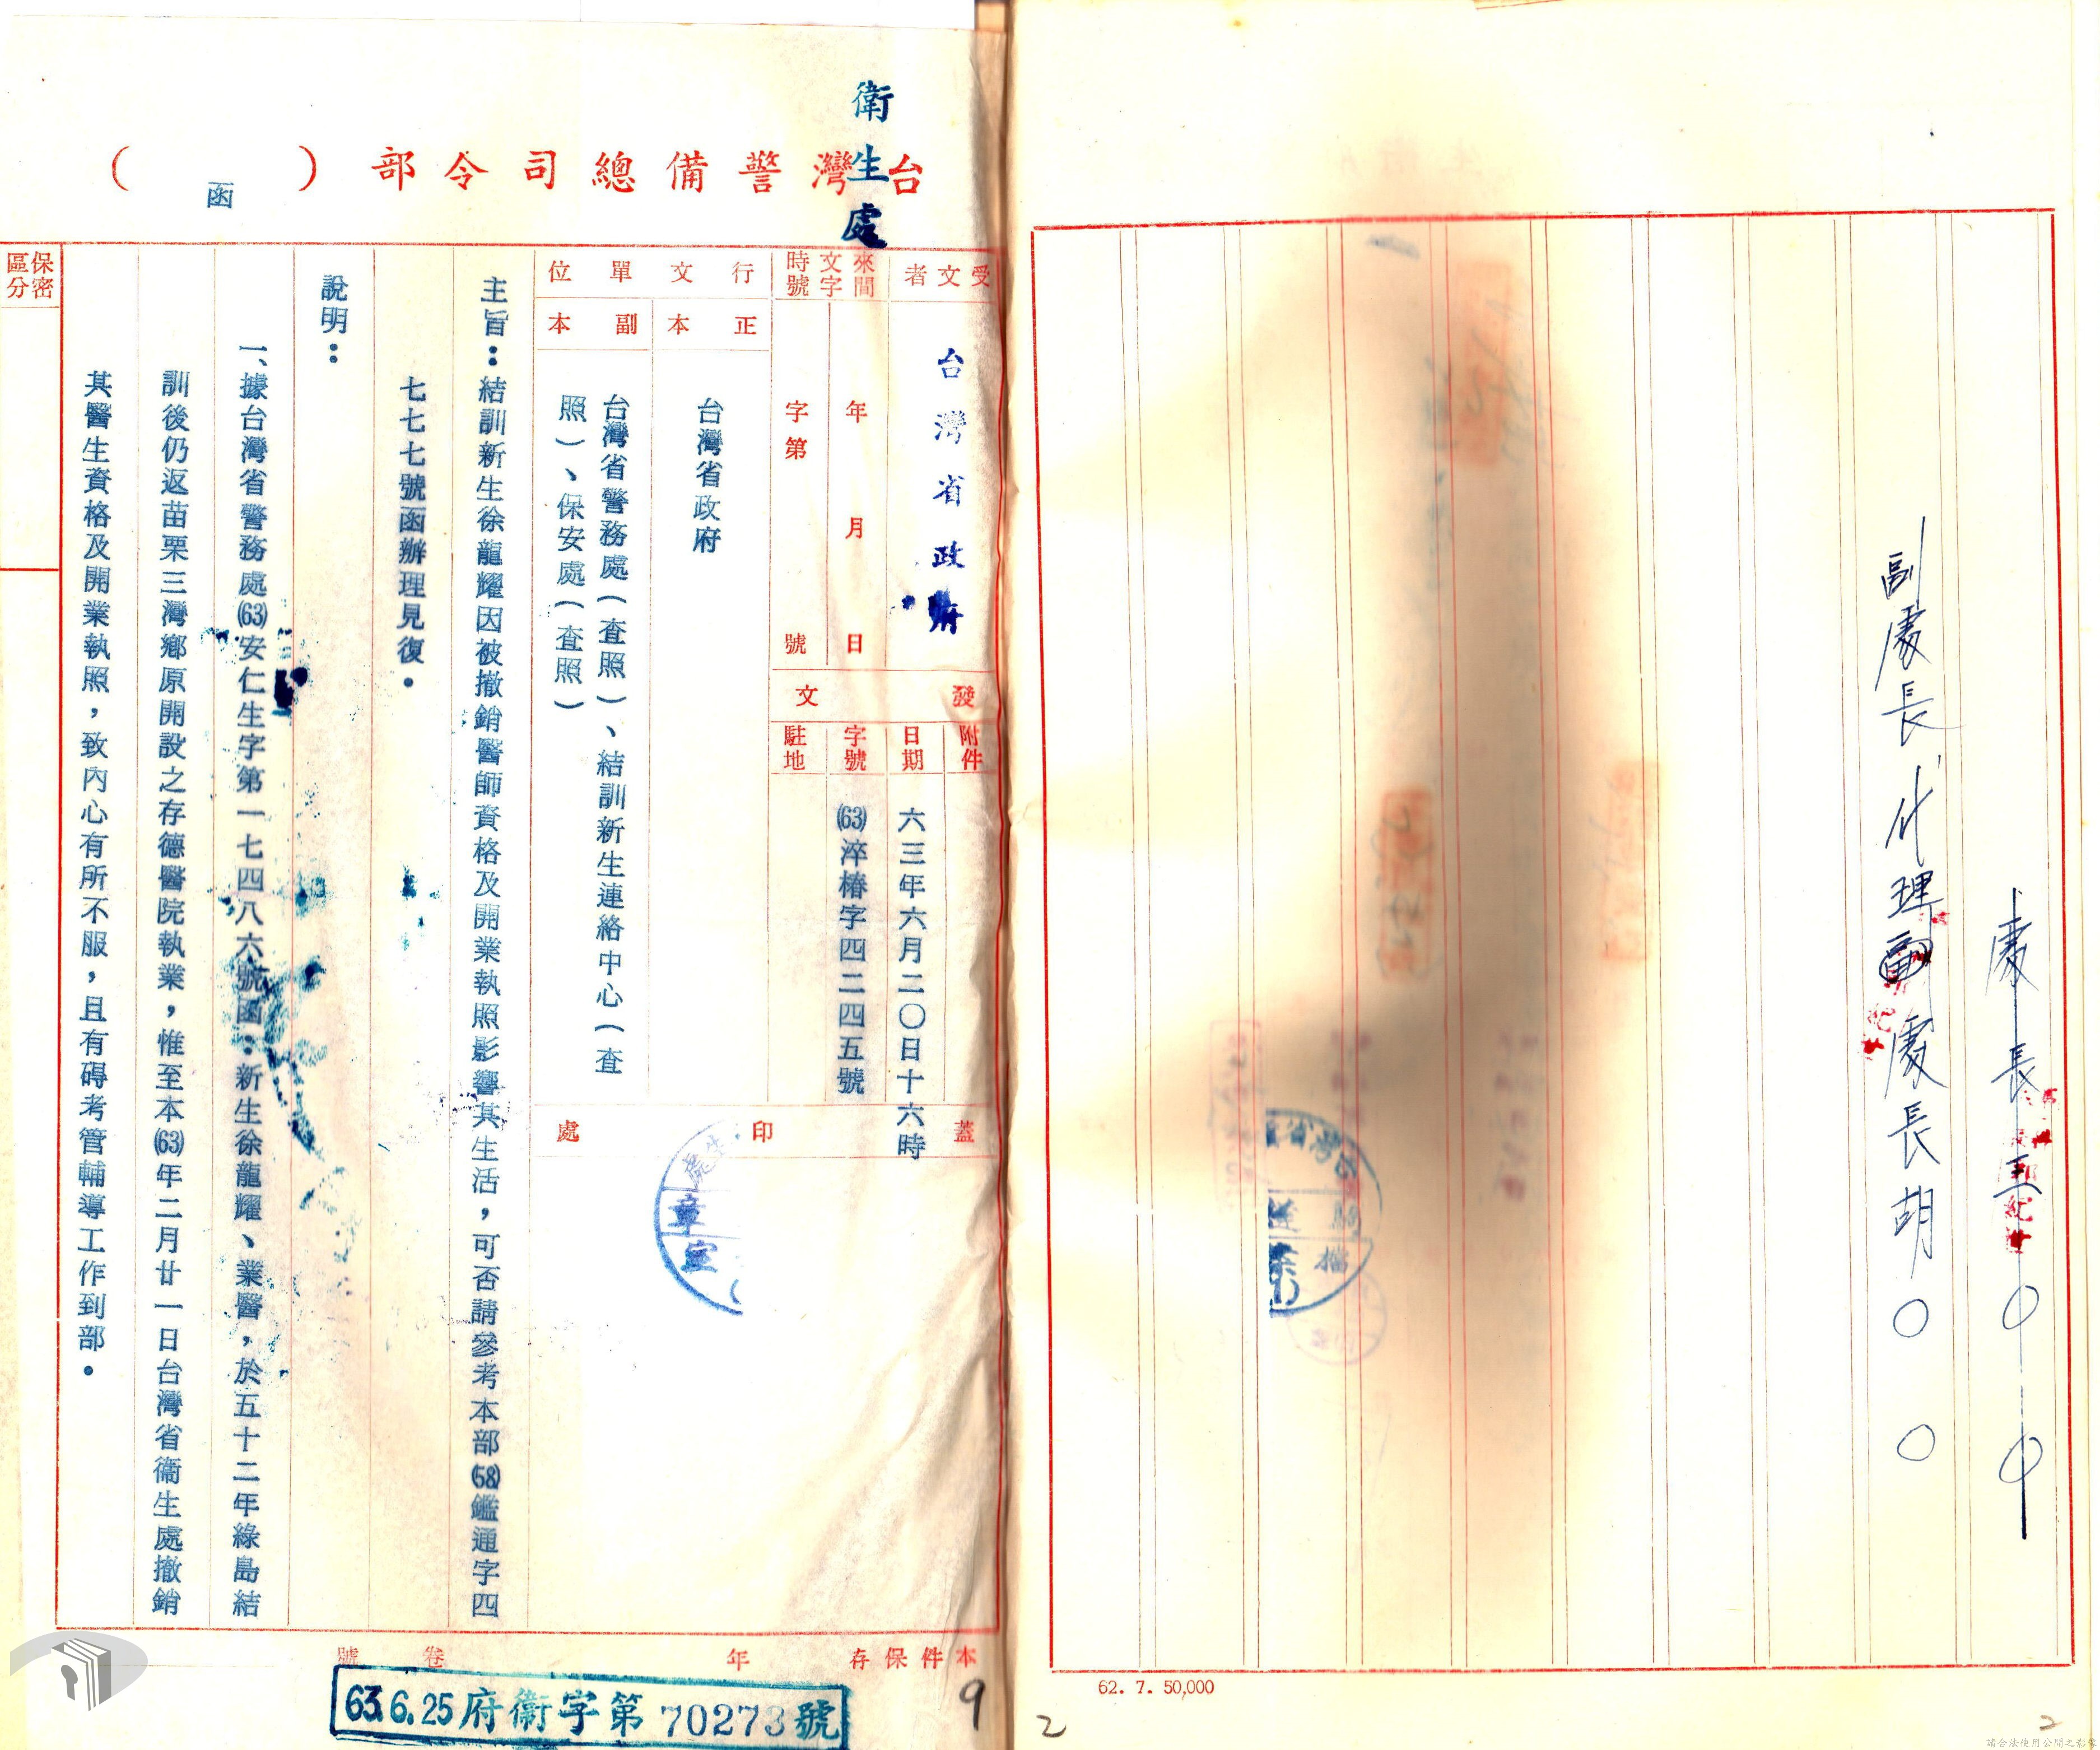 處長王〇〇
副處長代理處長胡〇〇
62. 7. 50,000
2
2
衛生處
台灣警備總司令部（函）
受文者
台灣省政府
來文時間字號
年月日
字第號
發文
附件
日期
六三年六月二〇日十六時
字號
(63)淬椿字四二四五號
駐地
蓋印處
行文單位
正本
台灣省政府
副本
台灣省警務處（查照）、結訓新生連絡中心（查
照）、保安處（查照）
主旨：結訓新生徐龍耀因被撤銷醫師資格及開業執照影響其生活，可否請參考本部(58)鑑通字四
七七七號函辦理見復。
說明：
一、據台灣省警務處(63)安仁生字第一七四八六號函：新生徐龍耀、業醫，於五十二年綠島結
訓後仍返苗栗三灣鄉原開設之存德醫院執業，惟至本(63)年二月廿一日台灣省衛生處撤銷
其醫生資格及開業執照，致內心有所不服，且有碍考管輔導工作到部。
保密區分
本件保存年卷號
63.6.25府衛字第70273號
9
請合法使用公開之影像